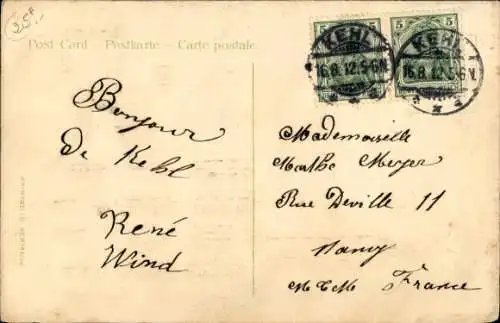 25.-
Post Card Postkarte Carte postale
5 5
KEHL
16.8.12.5-6N.
KEHL
16.8.12.5-6N.
Bonjour
de Kehl
René
Wind
Mademoiselle
Marthe Meyer
Rue Deville 11
Nancy
M et M France